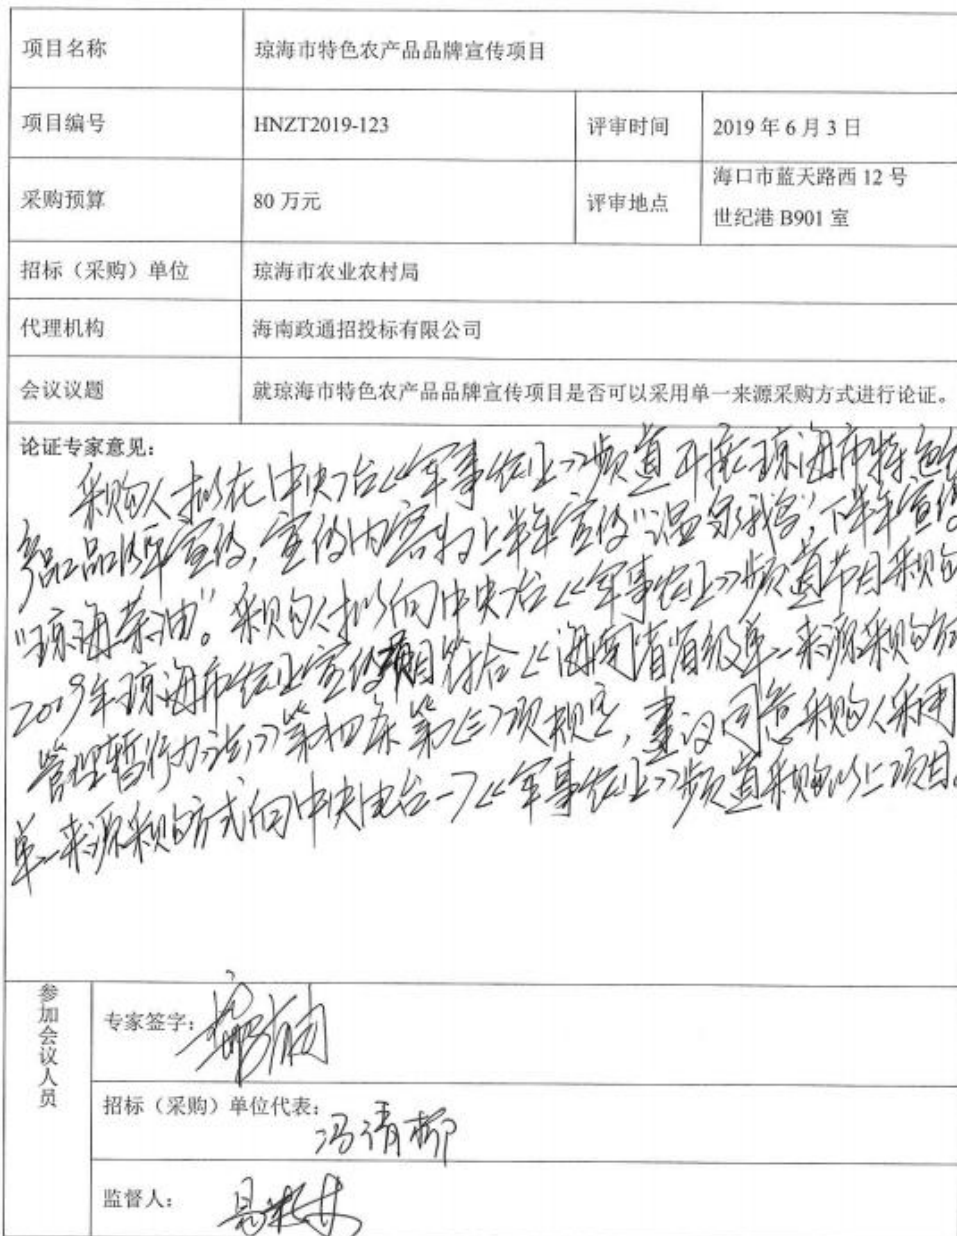 项目名称 琼海市特色农产品品牌宣传项目
项目编号 HNZT2019-123 评审时间 2019 年 6 月 3 日
采购预算 80 万元 评审地点 海口市蓝天路西 12 号
世纪港 B901 室
招标（采购）单位 琼海市农业农村局
代理机构 海南政通招投标有限公司
会议议题 就琼海市特色农产品品牌宣传项目是否可以采用单一来源采购方式进行论证。
论证专家意见：
采购人拟在中央台《军事农业》频道开展琼海市特色农
产品品牌宣传，宣传内容为上半年宣传“温泉鹅”，下半年宣传
“琼海茶油”。采购人拟向中央台《军事农业》频道节目采购
2019年琼海市农业宣传项目符合《海南省省级单一来源采购方式
管理暂行办法》第四条第（三）项规定，建议同意采购人采用
单一来源采购方式向中央电台-7《军事农业》频道采购以上项目。
参加会议人员
专家签字：
招标（采购）单位代表：冯清柳
监督人：